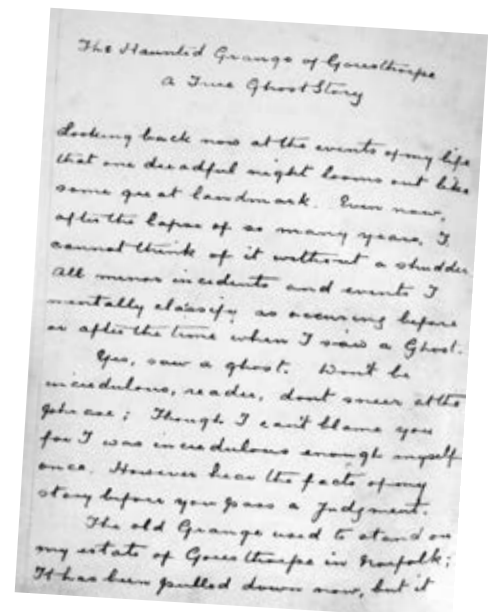 The Haunted Grange of Goresthorpe
A True Ghost Story
Looking back now at the events of my life
that one dreadful night looms out like
some great landmark. Even now,
after the lapse of so many years, I
cannot think of it without a shudder.
All minor incidents and events I
mentally classify as occuring before
or after the time when I saw a Ghost.
Yes, saw a ghost. Don't be
incredulous, reader, dont sneer at the
phrase; Though I can't blame you
for I was incredulous enough myself
once. However hear the facts of my
story before you pass a judgment.
The old Grange used to stand on
my estate of Goresthorpe in Norfolk;
It has been pulled down now, but it